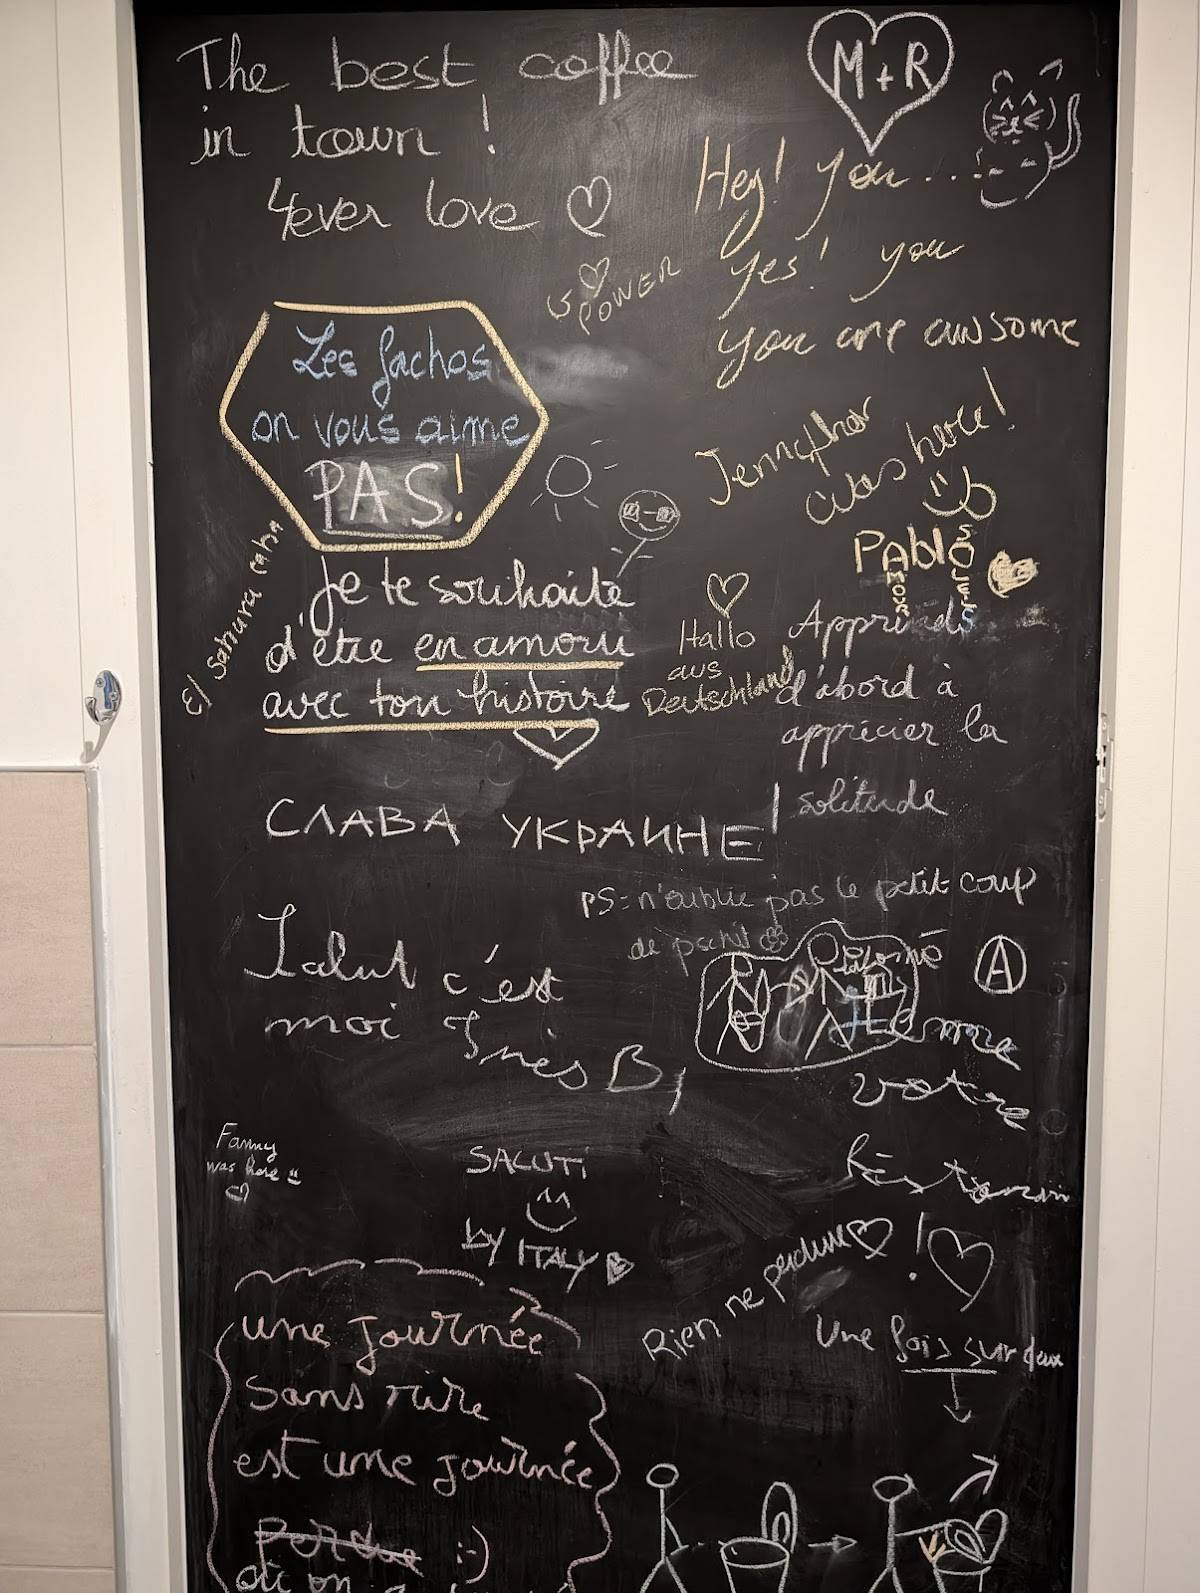 The best coffee
in town !
4ever love
M + R
Hey! you ....
yes! you
you are awsome
is POWER
Les fachos
on vous aime
PAS!
was here!
Pablo
El Sahara
Je te souhaite
d'être en amour
avec ton histoire
Hallo
aus
Deutschland
Apprends
d'abord à
apprécier la
solitude
СЛАВА УКРАИНЕ!
PS: n'oublie pas le petit coup
de pschit
A
Salut c'est
moi Inès B
votre
Fanny
was here
SALUTI
by ITALY
Rien ne perdure
!
Une fois sur deux
une journée
sans rire
est une journée
perdue :-)
où on